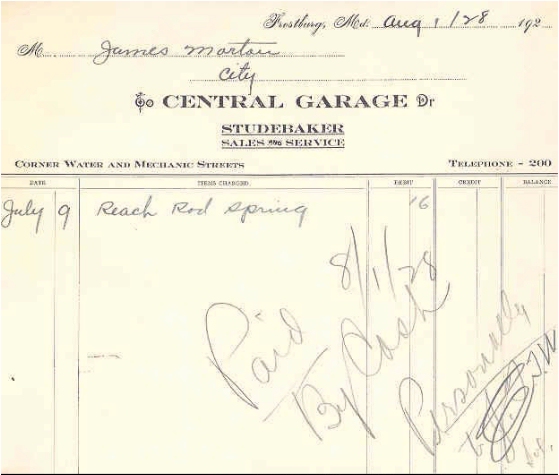 Frostburg, Md. Aug 1/28 192
M James Morton
City
To CENTRAL GARAGE Dr
STUDEBAKER
SALES AND SERVICE
CORNER WATER AND MECHANIC STREETS TELEPHONE - 200
DATE ITEMS CHARGED DEBIT CREDIT BALANCE
July 9 Reach Rod Spring 16
Paid 8/1/28
By Cash
Personally